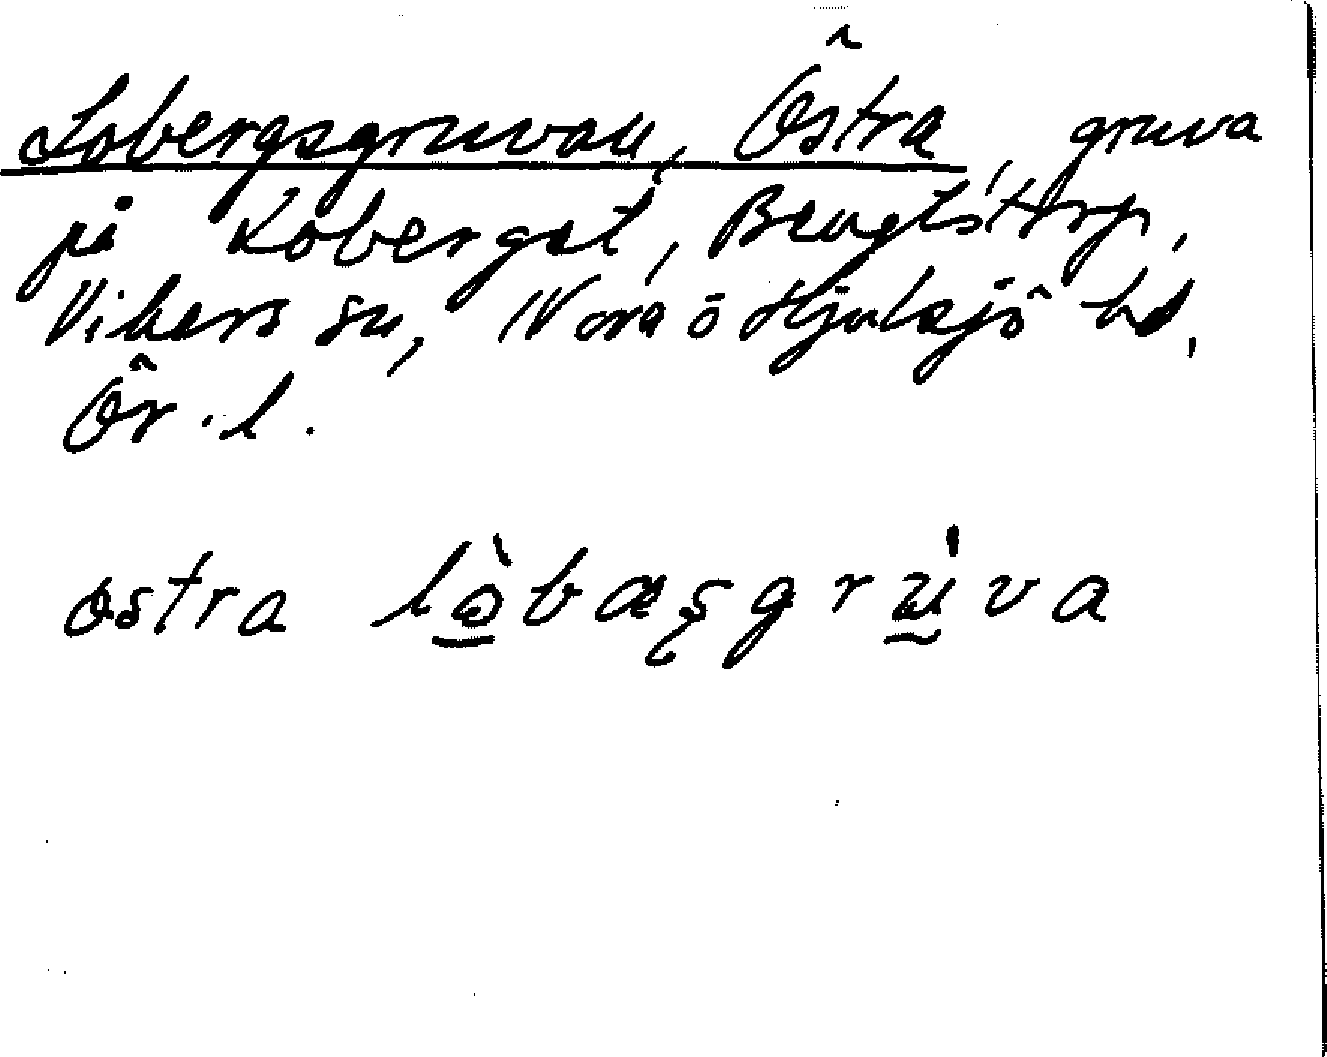 Lobergsgruvan, Östra, gruva
på Lobergat, Bengtstorp,
Vikers sn, Nora ö Hjulsjö hd,
Ör. l.
østra lòbæşgrúva